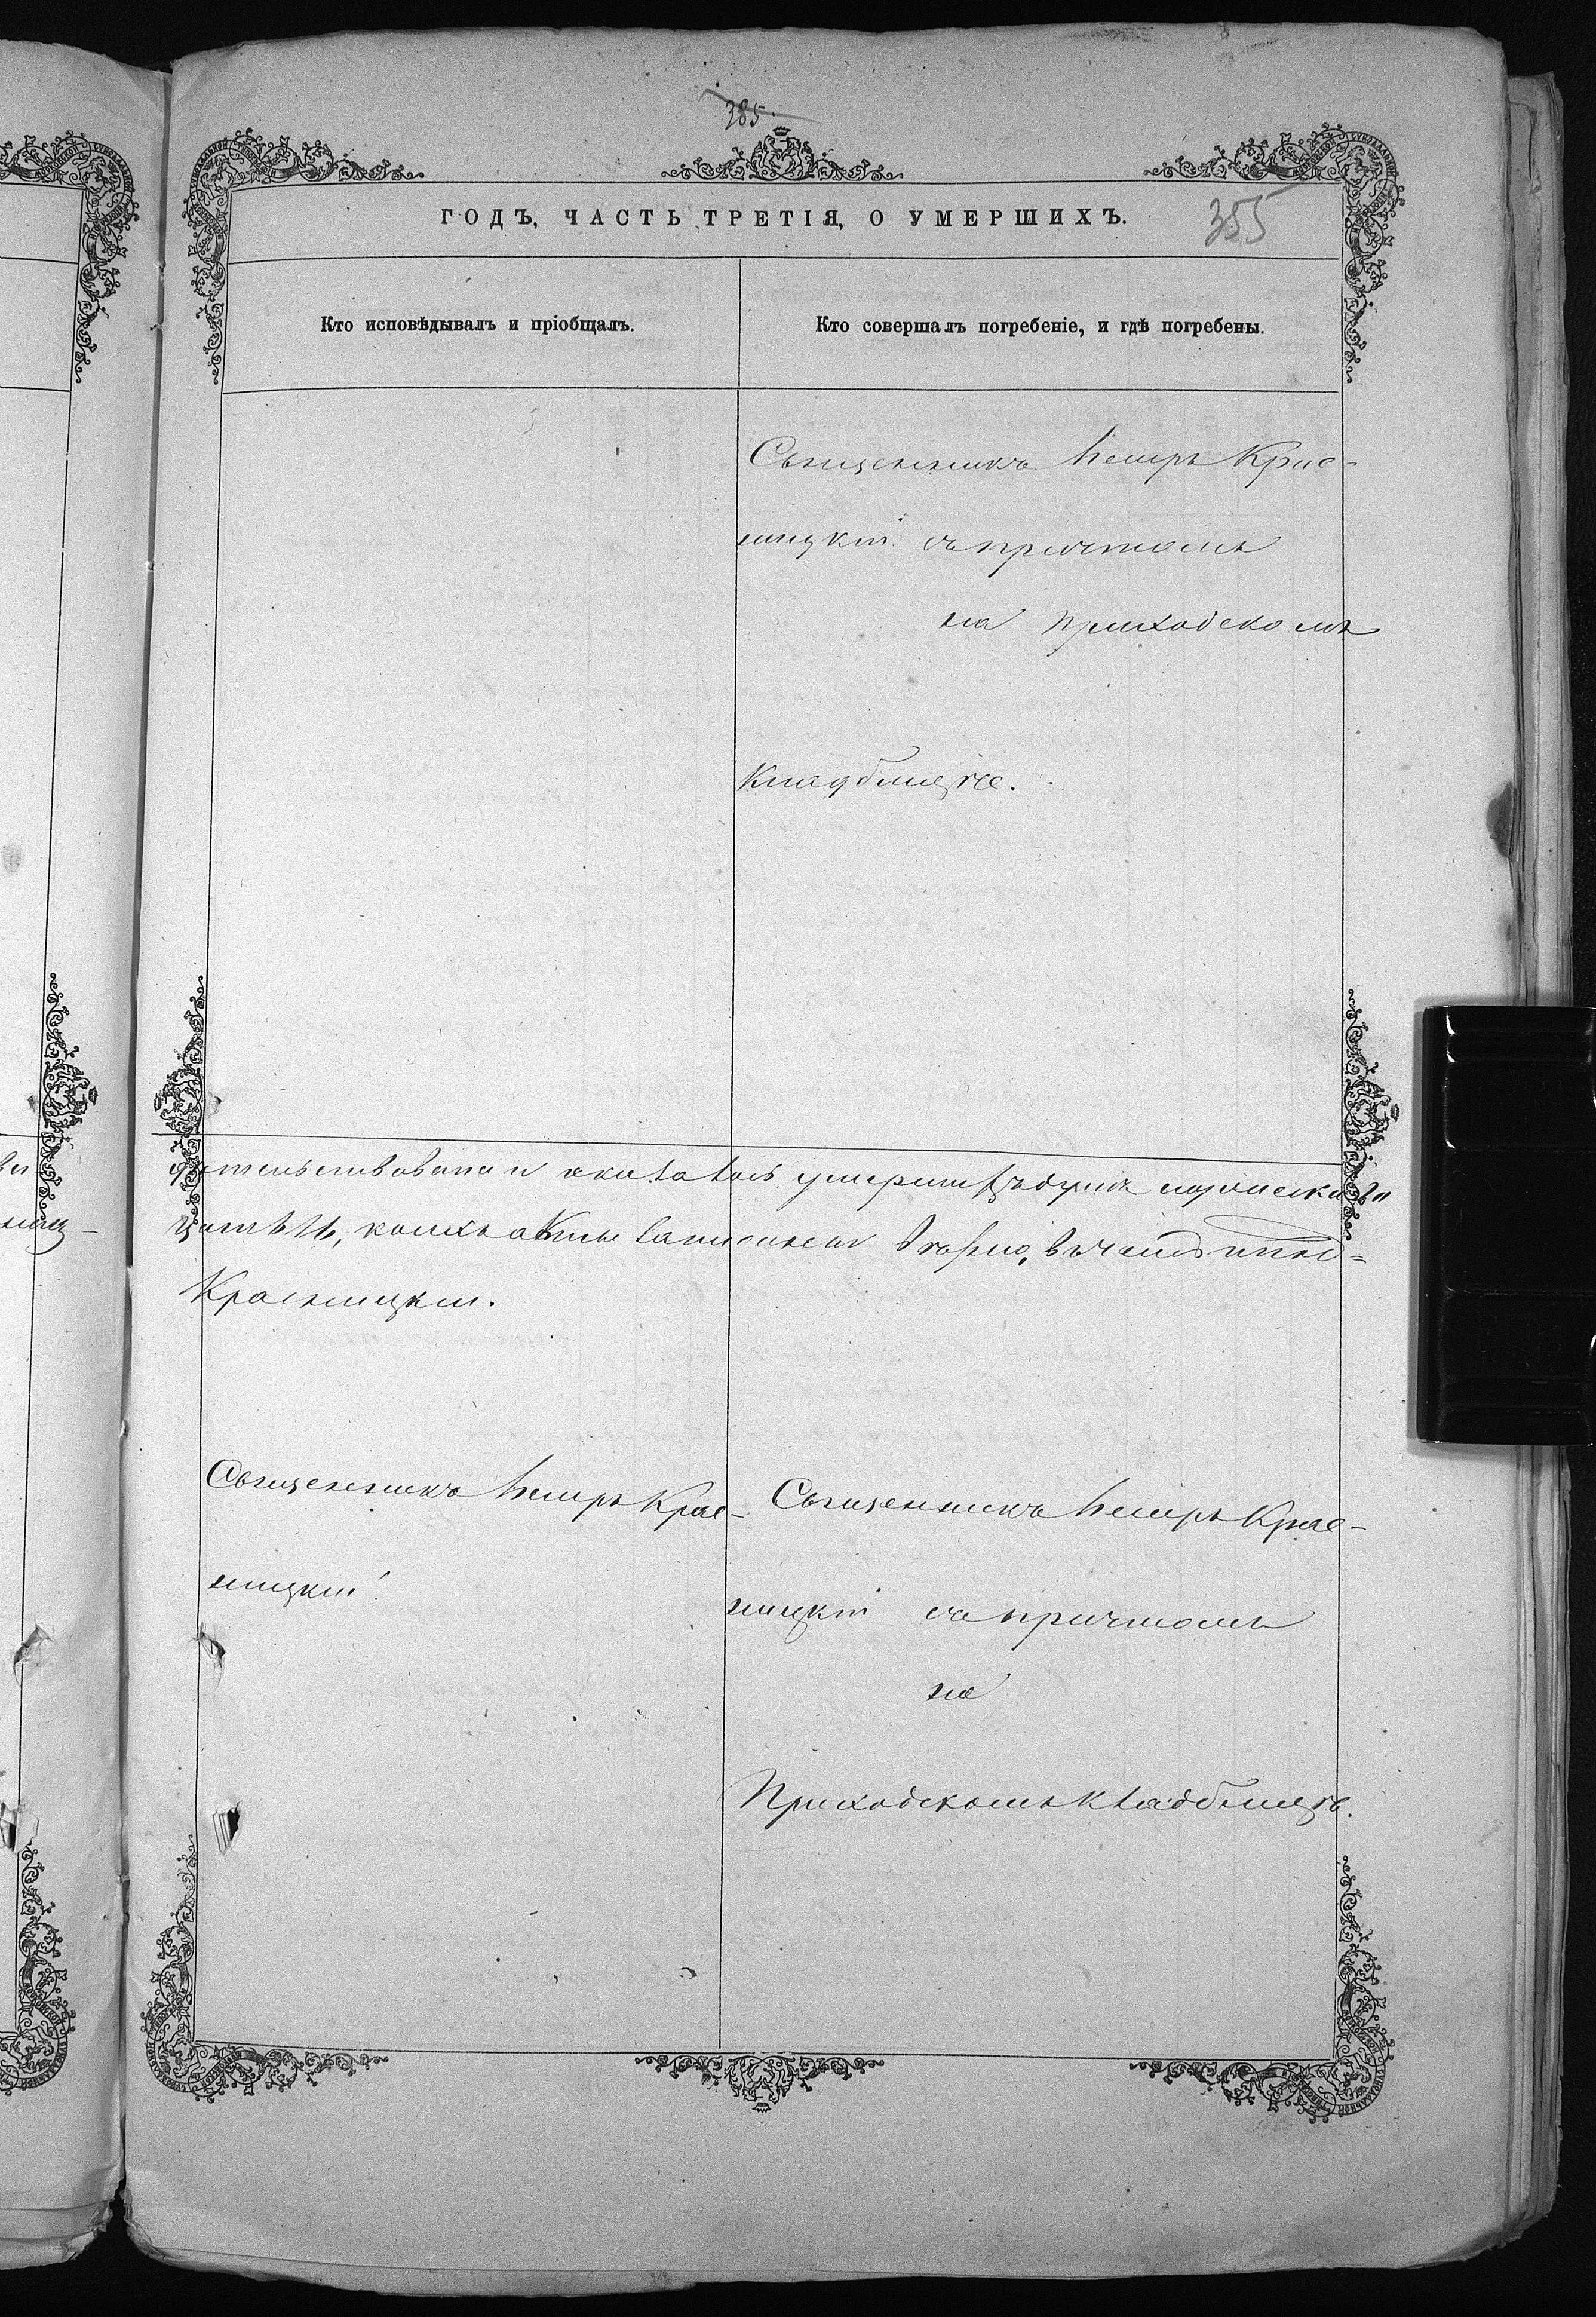 385
ГОДЪ, ЧАСТЬ ТРЕТІЯ, О УМЕРШИХЪ.
355
Кто исповѣдывалъ и пріобщалъ.
Кто совершалъ погребеніе, и гдѣ погребены.
Священникъ Петръ Крас-
ницкій съ причтомъ
на приходскомъ
кладбищѣ.
умершихъ мужеска 20
коихъ акты записаны вѣрно, въ чемъ
Красницкій.
Священникъ Петръ Крас-
ницкій.
Священникъ Петръ Крас-
ницкій съ причтомъ
на
Приходскомъ кладбищѣ.